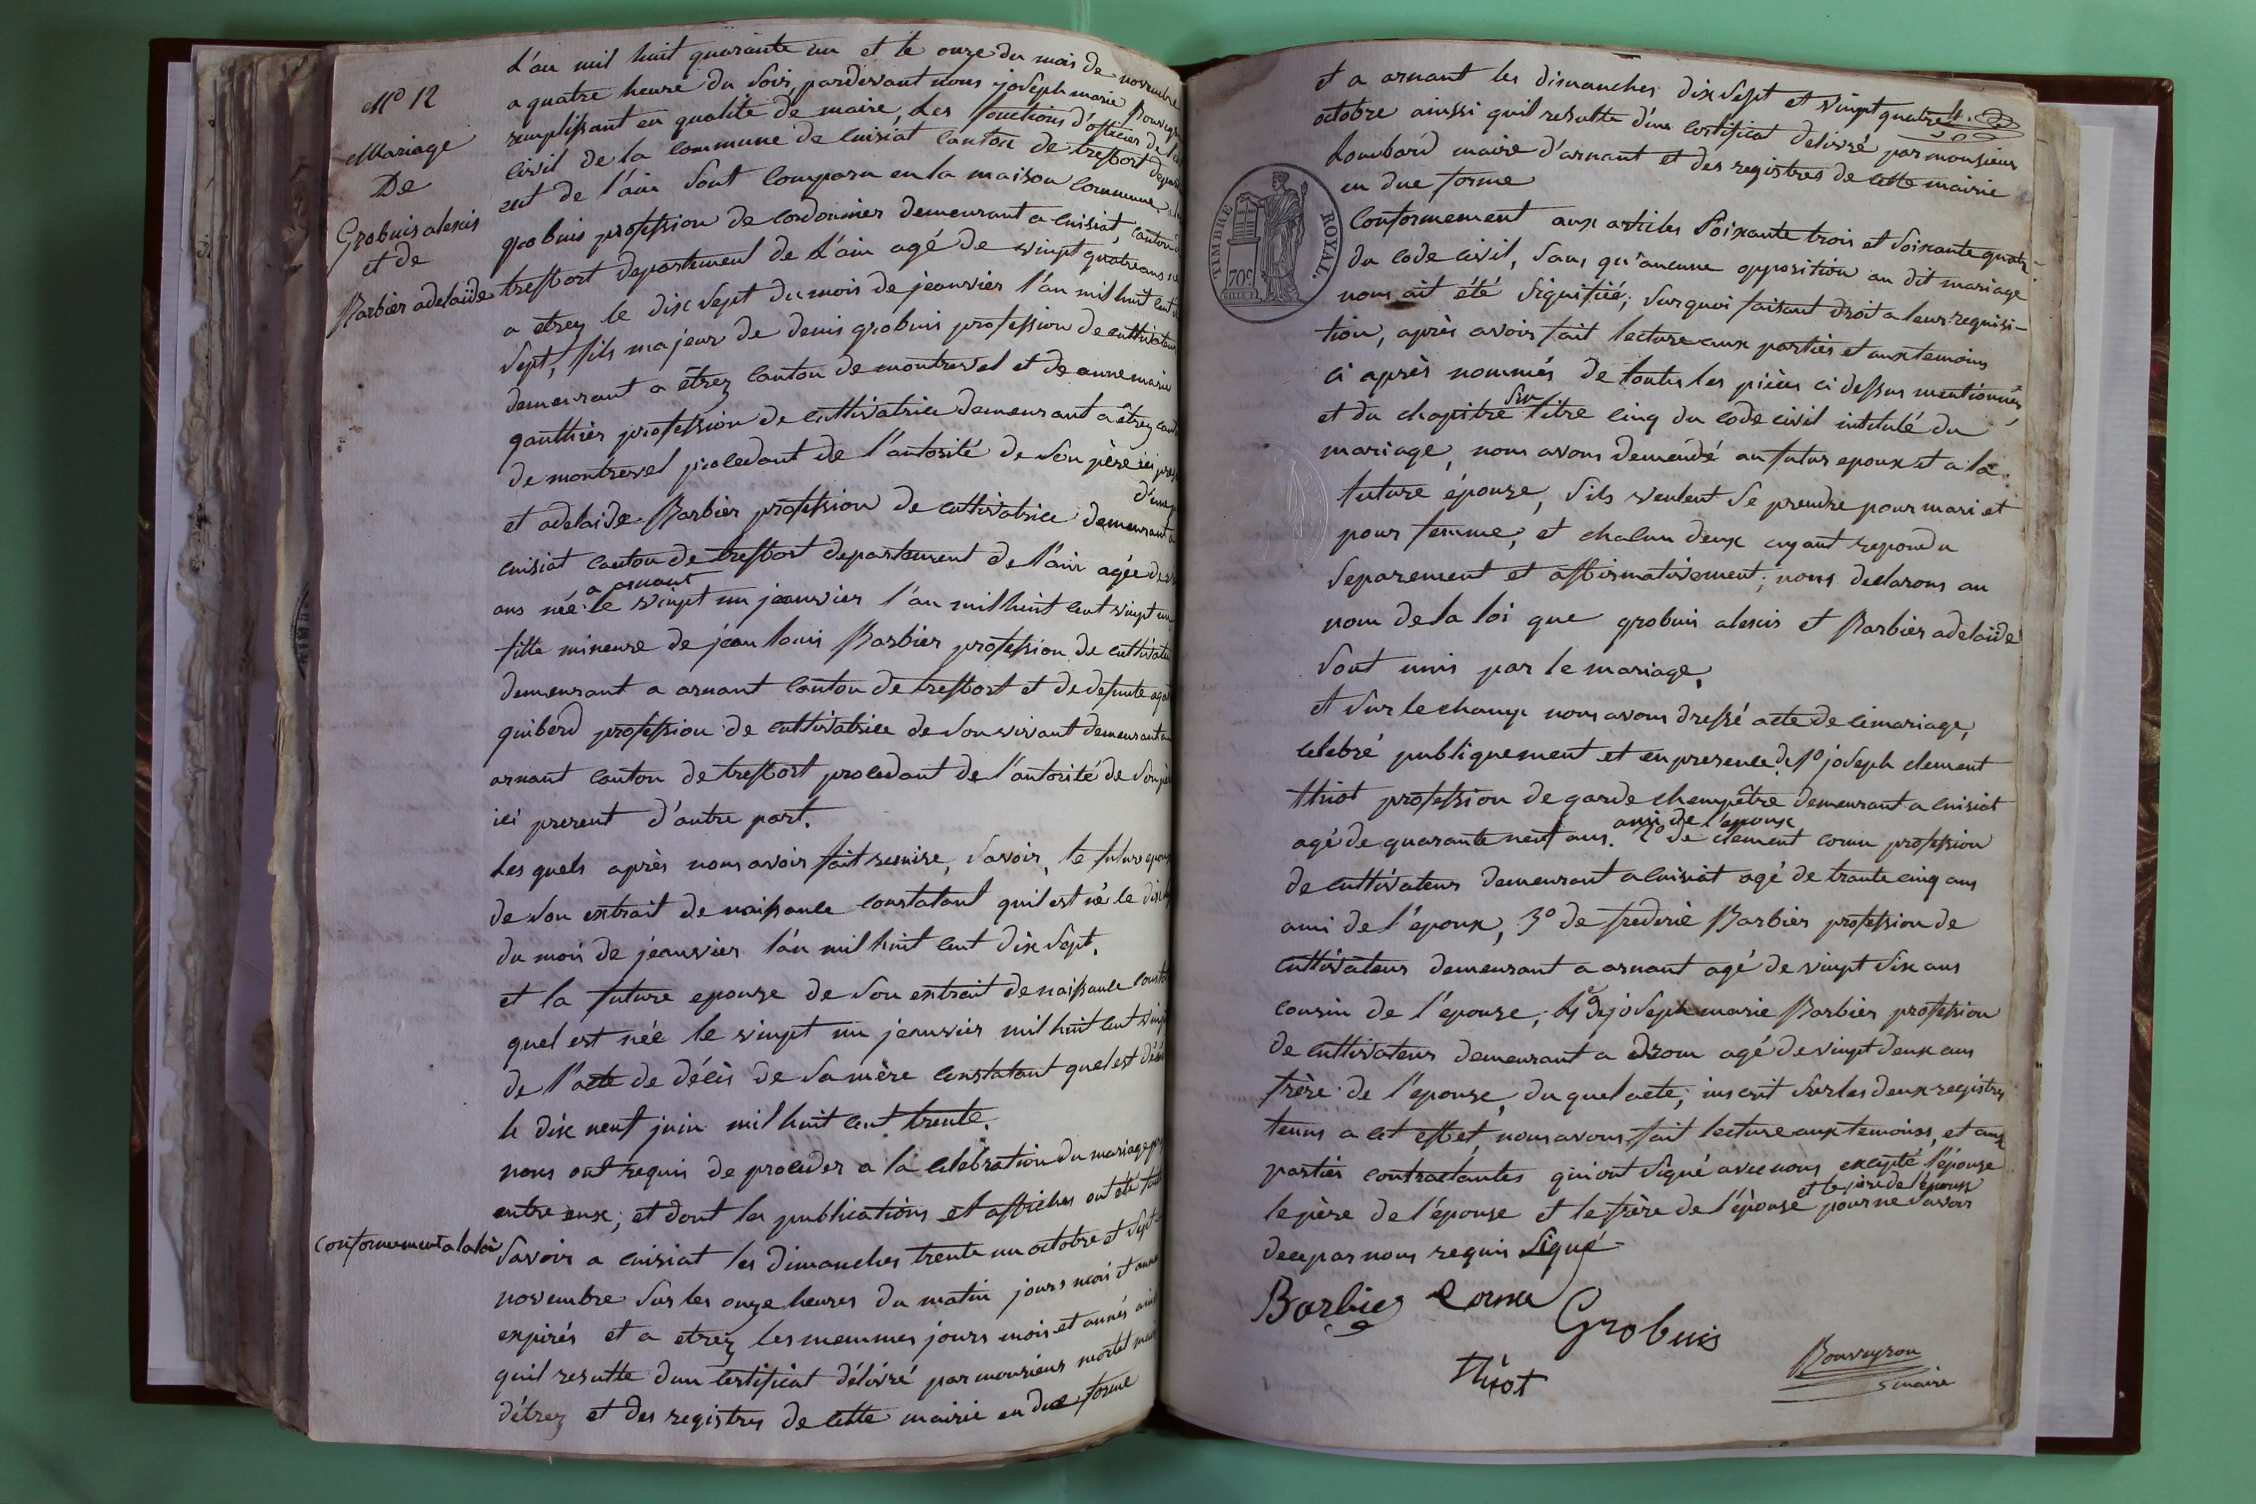 No 12
Mariage
De
Grobuis alexis
et de
Barbier adelaïde
L'an mil huit quarante un et le onze du mois de novembre
a quatre heure du soir, pardevant nous joseph marie Bouveyron
remplissant en qualité de maire, Les fonctions d'officier de l'
civil de la commune de cuisiat canton de treffort depart
ent de l'ain sont comparu en la maison commune
grobuis profession de cordonnier demeurant a cuisiat, canton
treffort departement de L'ain agé de vingt quatre ans
a etrez le dix sept du mois de jeanvier l'an mil huit cent
sept, fils majeur de denis grobuis profession de cultivateur
demeurant a êtrez canton de montrevel et de anne marie
gauthier profession de cultivatrice demeurant a êtrez
de montrevel procedant de l'autorité de son père ici
d'une
et adelaide Barbier profession de cultivatrice demeurant a
cuisiat canton de treffort departement de l'ain agée de
a arnant
ans née le vingt un jeanvier l'an mil huit cent vingt un
fille mineure de jean louis Barbier profession de cultivateur
demeurant a arnant canton de treffort et de defunte
guiberd profession de cultivatrice de son vivant demeurant a
arnant canton de treffort procedant de l'autorité de son
ici present d'autre part.
Les quels après nous avoir fait remise, savoir, le futur epoux
de son extrait de naissance constatant quil est né le dix
du mois de jeanvier l'an mil huit cent dix sept.
et la future epouze de son extrait de naissance
quel est née le vingt un jeanvier mil huit cent vingt
de l'acte de décès de sa mère constatant quel est
le dix neuf juin mil huit cent trente.
nous ont requis de proceder a la celebration du mariage
entre eux; et dont les publications et affiches ont été
conformement a la loi
Savoir a cuisiat les dimanches trente un octobre et sept
novembre sur les onze heures du matin jours mois et année
expirés et a etrez les memmes jours mois et année
quil resulte dun certificat délivré par monsieur mortel
d'étrez et des registres de cette mairie en due forme
et a arnant les dimanches dix sept et vingt quatre
octobre ainssi quil resulte d'un certificat delivré par monsieur
Lombard maire d'arnant et des registres de cette mairie
en due forme
TIMBRE ROYAL.
70c
conformement aux articles soixante trois et soixante quatre
du code civil, sans qu'aucune opposition au dit mariage
nous ait été signifiée; surquoi faisant droit a leur requisi-
tion, après avoir fait lecture aux parties et aux temoins
ci après nommés de toutes les pièces ci dessus mentionnées
six
et du chapitre titre cinq du code civil intitulé du
mariage, nous avons demendé au futur epoux et a la
future épouze, s'ils veulent se prendre pour mari et
pour femme, et chacun deux ayant repondu
separement et affirmativement; nous declarons au
nom de la loi que grobuis alexis et Barbier adelaïde
sont unis par le mariage.
et sur le champ nous avons dressé acte de cimariage,
celebré publiquement et en presence de 1o joseph clement
thiot profession de garde champêtre demeurant a cuisiat
ami de l'epoux
agé de quarante neuf ans. 2o de clement cornu profession
de cultivateur demeurant a cuisiat agé de trante cinq ans
ami de l'époux, 3o de frederic Barbier profession de
cultivateur demeurant a arnant agé de vingt six ans
cousin de l'épouze; 4o de joseph marie Barbier profession
de cultivateur demeurant a drom agé de vingt deux ans
frère de l'epouze, du quel acte, inscrit sur les deux registres
tenus a cet effet, nous avons fait lecture aux temoins, et aux
parties contractantes qui ont signé avec nous excepté l'épouze
et le père de l'époux
le père de l'épouze et le frère de l'épouse pour ne savoir
dece par nous requis Signé
Barbier Cornu
Grobuis
Thiot
Bouveyron
maire